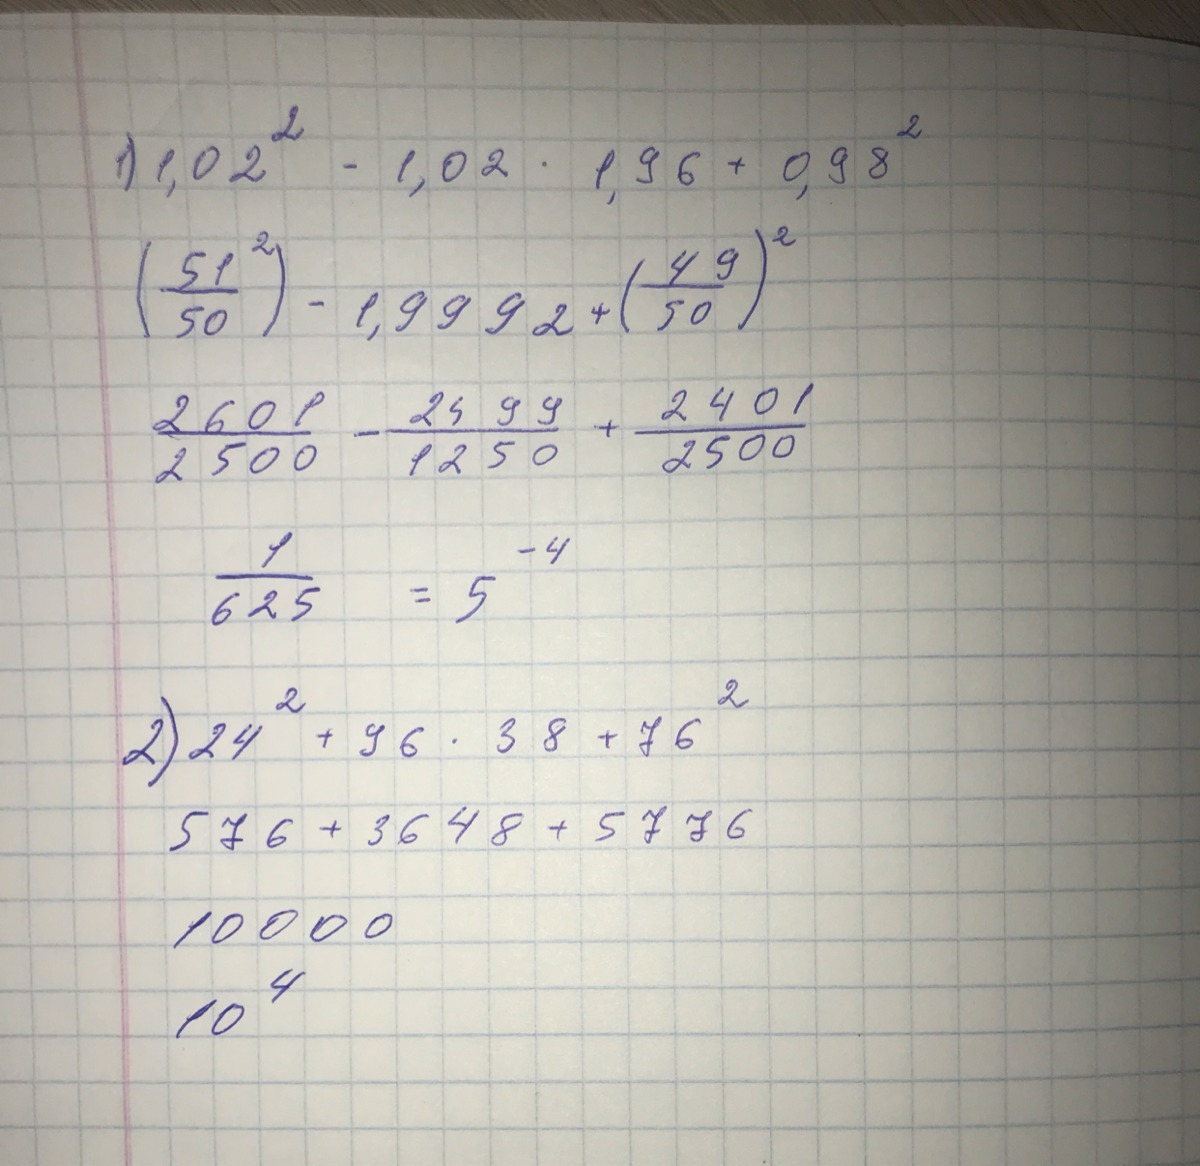 1) 1,02² - 1,02 · 1,96 + 0,98²
(51/50²) - 1,9992 + (49/50)²
2601/2500 - 2499/1250 + 2401/2500
1/625 = 5⁻⁴
2) 24² + 96 · 38 + 76²
576 + 3648 + 5776
10000
10⁴